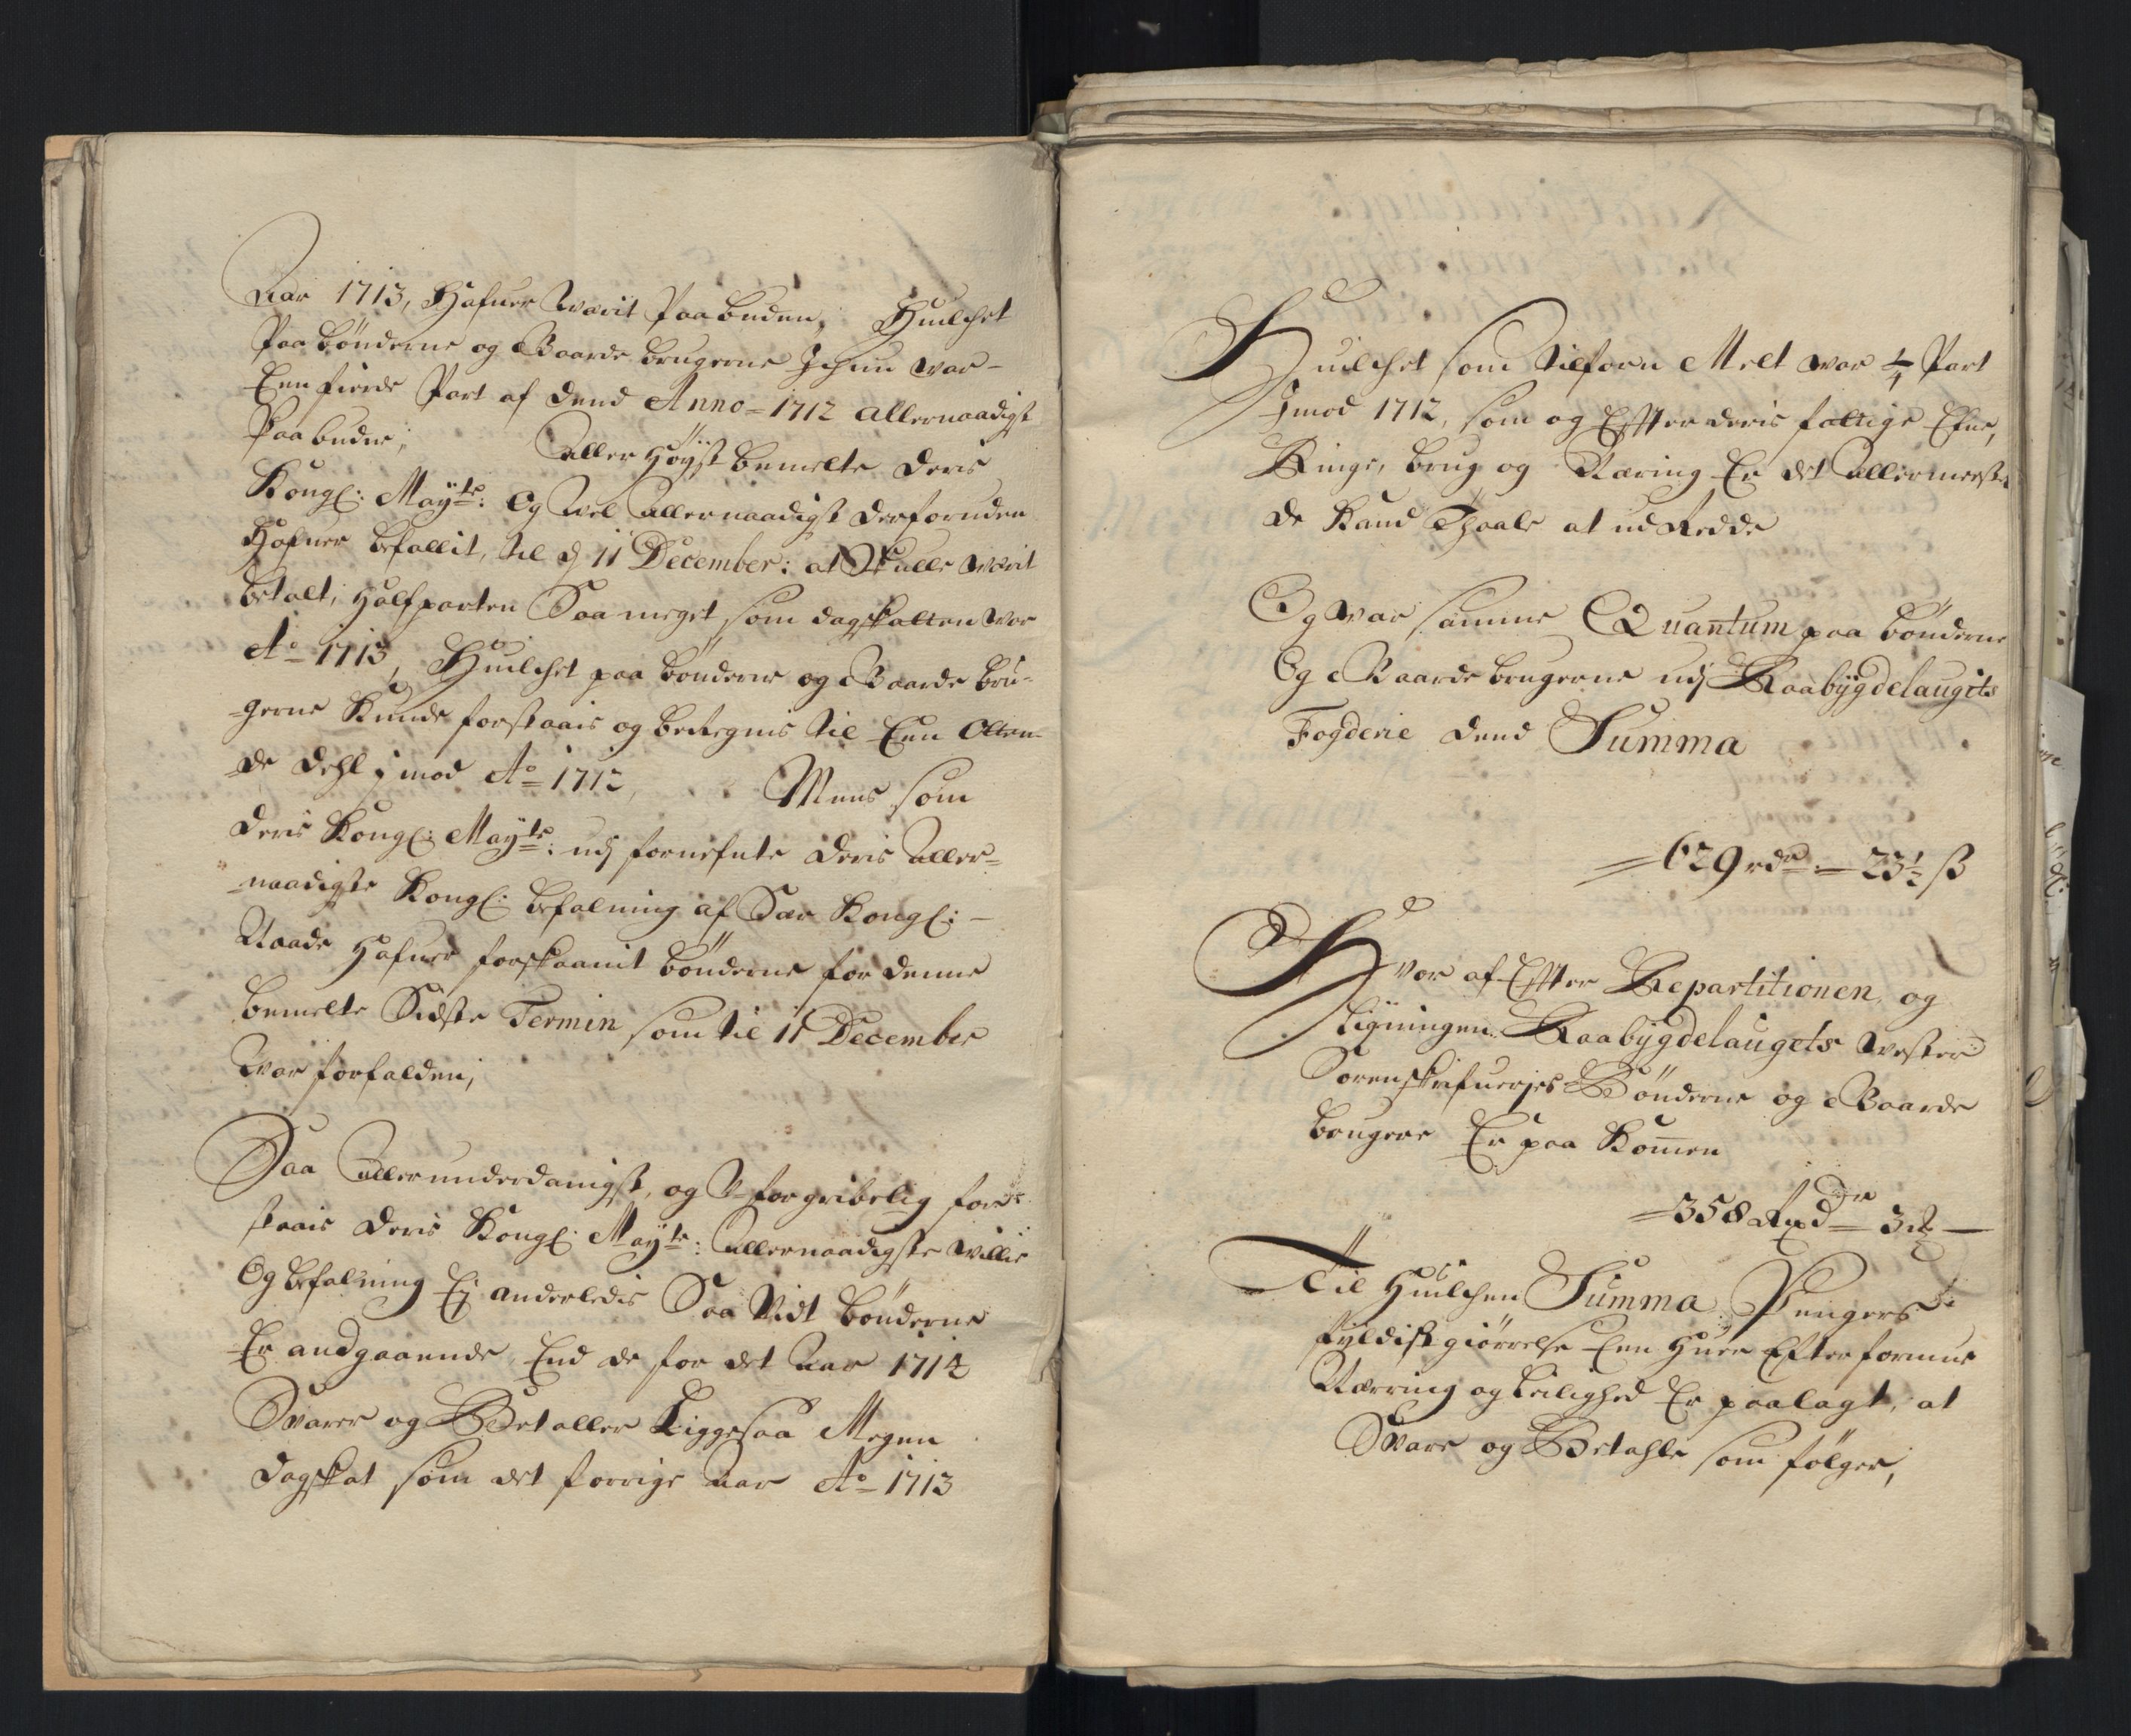 Aar 1713, Hafuer Warit Paabuden, Huilchet
Paa bönderne og Gaarde brugerne Ichun war
Een fierde Part af dend Anno 1712 allernaadigst
Paabudne; Aller Höyst bemelte deris
Kongl: Mayts: Og Vel Allernaadigst derforuden
Hafuer befallit, til d 11 December: at Skulle wærit
betalt, Halfparten Saa meget som dagskatten war
Ao 1713, Huilchet paa bönderne og Gaarde bru-
-gerne Kunde forstaais og beregnis til Een Otten-
de Dehl imod Ao 1712, Mens som
deris Kongl: Mayts: udj fornefnte deris Aller-
naadigste Kongl: befalning af Sær Kongl:
Naade Hafuer forskaanit bönderne for denne
bemelte Sidste Termin som til 11 December
War forfalden;
Saa Allerunderdanigst, og U-forgribelig for-
staais deris Kongl: Mayts: Allernaadigste Villie
Og befalning Ej anderledis Saa Vidt bönderne
Er andgaaende, End de for det Aar 1714
Svarer og Betaller Liggesaa Megen
dagskat som det forrige Aar Ao 1713
Huilchet som tilforn Melt war 1/4 Part
Imod 1712, som og Effter deris fattige Efne,
Ringe, brug og Næring Er det Allermeeste
de Kand Thaale at udRedde
Og war samme Quantum paa bönderne
Og Gaarde brugerne udj Raabÿgdelaugets
Fogderie dend Summa
629 rdr: 23½ ß
Hvor af Effter Repartitionen og
Ligningen Raabÿgdelaugets Wester
Sorenskrifueries Bönderne og Gaarde
brugere Er paa Komen
358 Rxdr 3
Til Huilchen Summa Pengers
fyldistgiörrelse Een Huer Efter formue
Nærring og Leilighed Er paalagt, at
Svare og Betahle som fölger,